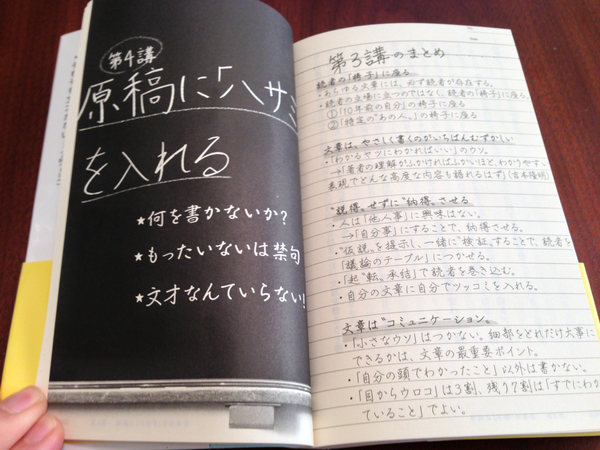 第4講
原稿に「ハサミ
を入れる
★何を書かないか?
★もったいないは禁句
★文才なんていらない!
第3講のまとめ
読者の「椅子」に座る
・あらゆる文章には、必ず読者が存在する。
・読者の立場に立つのではなく、読者の「椅子」に座る。
①「10年前の自分」の椅子に座る
②「特定の"あの人"」の椅子に座る
文章は、やさしく書くのがいちばんむずかしい
・「わかるヤツにわかればいい」のウソ。
→「著者の理解がふかければふかいほど、わかりやすい
表現でどんな高度な内容も語れるはず」(吉本隆明)
"説得"せずに"納得"させる
・人は「他人事」に興味はない。
→「自分事」にすることで、納得させる。
・"仮説"を提示し、一緒に"検証"することで、読者を
「議論のテーブル」につかせる。
・「起"転"承結」で読者を巻き込む。
・自分の文章に自分でツッコミを入れる。
文章は"コミュニケーション"
・「小さなウソ」はつかない。細部をどれだけ大事に
できるかは、文章の最重要ポイント。
・「自分の頭でわかったこと」以外は書かない。
・「目からウロコ」は3割、残り7割は「すでにわかっ
ていること」でよい。